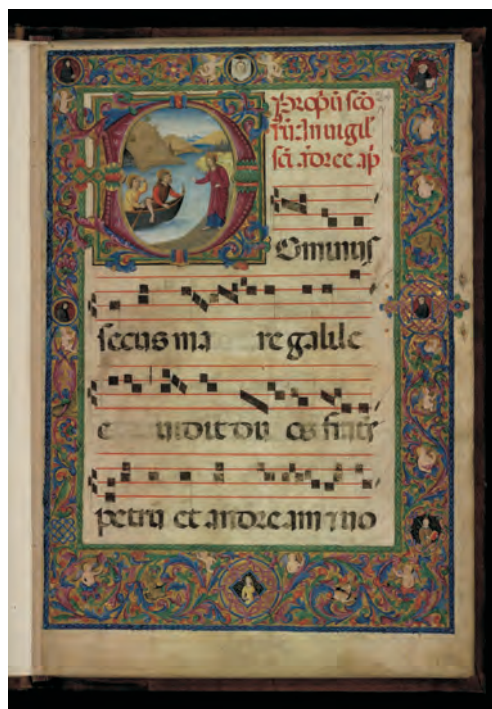 Propriũ scõ
rũ. In uigil'
scĩ ãdree ap̃
Dominus
secus ma re galile
e uidit du os
petrũ et andream ⁊ uo